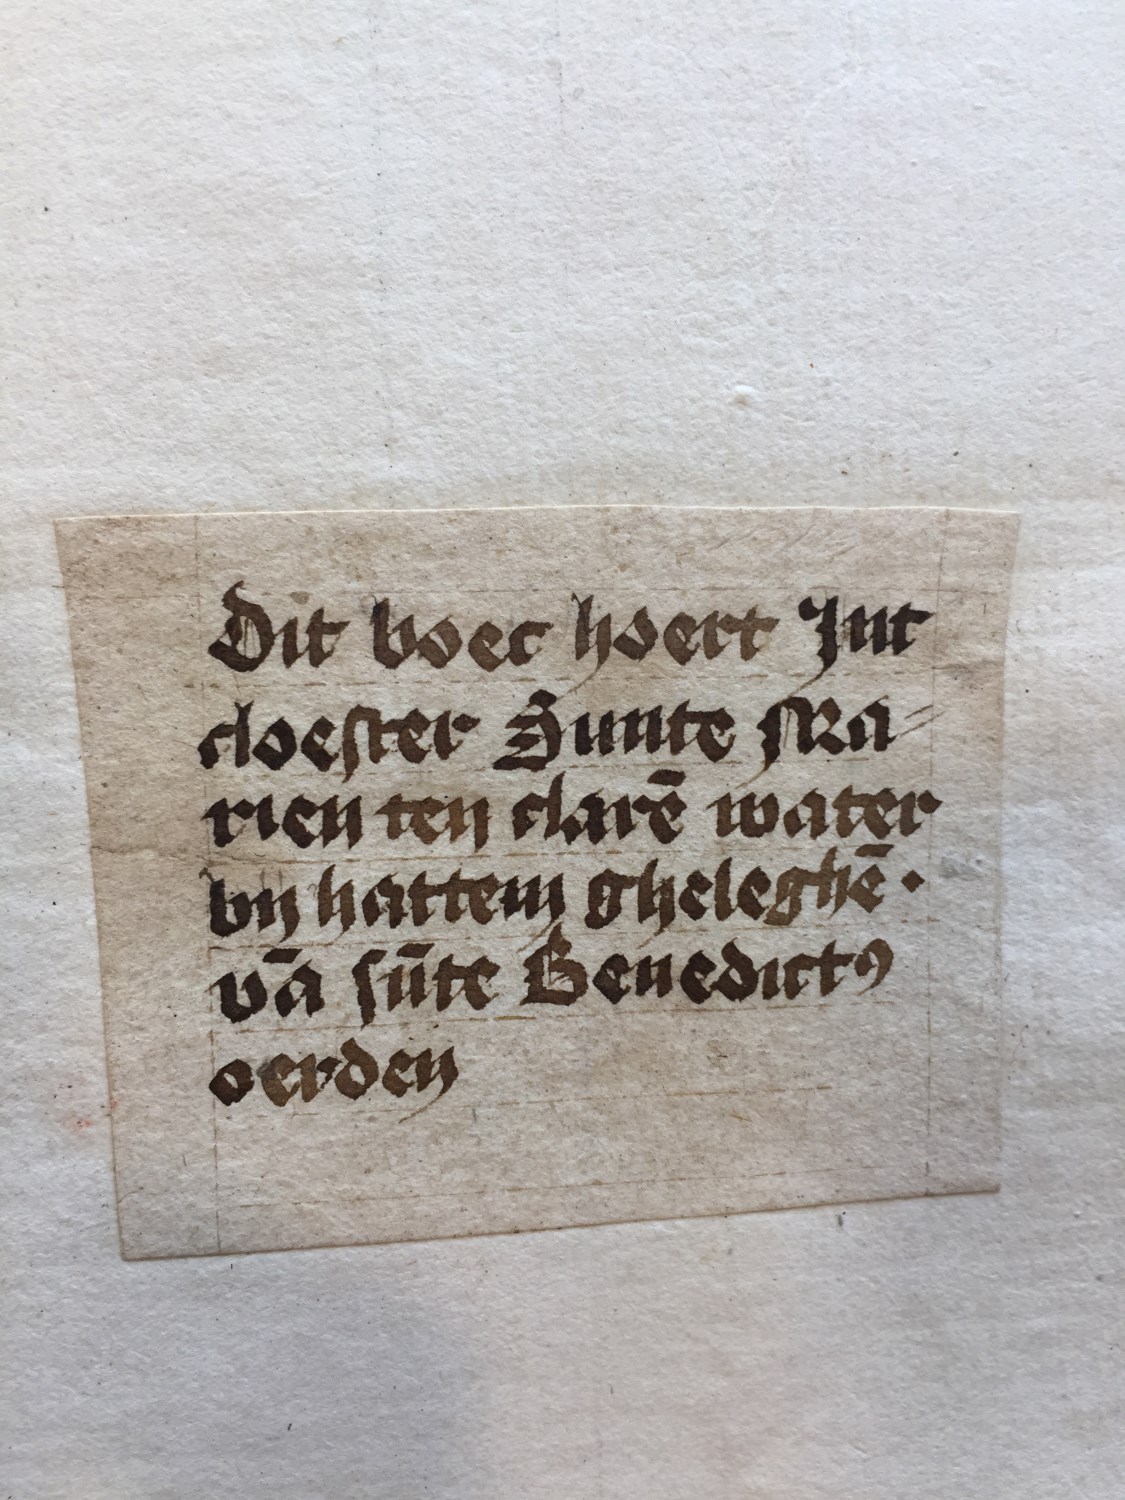 Dit boec hoert Int
cloester Sunte Ma=
rien ten clarē water
bij hattem gheleghē.
vā sūte Benedictꝰ
oerden